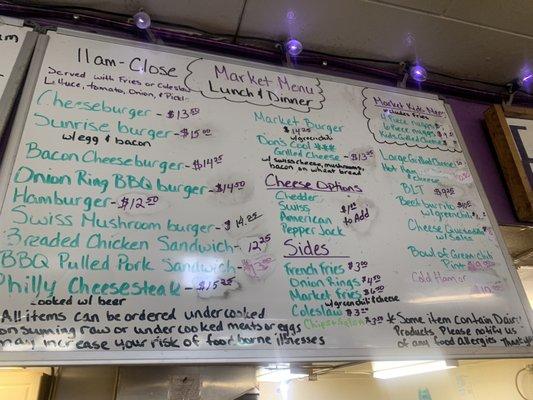 11am-Close
Served with Fries or Coleslaw
Lettuce, tomato, Onion, & Pickl
Cheeseburger - $13.50
Sunrise burger - $15.00
w/egg & bacon
Bacon Cheeseburger - $14.25
Onion Ring BBQ burger - $14.50
Hamburger - $12.50
Swiss Mushroom burger - $14.25
Breaded Chicken Sandwich - 12.25
BBQ Pulled Pork Sandwich
Philly Cheesesteak - $15.25
cooked w/ beer
All items can be ordered undercooked
consuming raw or undercooked meats or eggs
may increase your risk of food borne illnesses
Market Menu
Lunch & Dinner
Market Burger
$14.25
w/green chili
Don's Cool
Grilled Cheese - $13.25
w/ swiss cheese, mushroom,
bacon on wheat bread
Cheese Options
Chedder
Swiss
American
Pepper Jack
$1.00
to Add
Sides
French fries $3.00
Onion Rings $4.50
Market fries $6.00
w/green chili & cheese
Coleslaw $3.00
Chips + Salsa $3.00
Market Kids Menu
Large Grilled Cheese
& cheese
BLT $9.25
Beef burrito
w/green chili
Cheese Quesadilla
w/ salsa
Bowl of Green chili
Pint
Cold Ham or
*Some item contain Dairy
Products Please notify us
of any Food Allergies Thank you